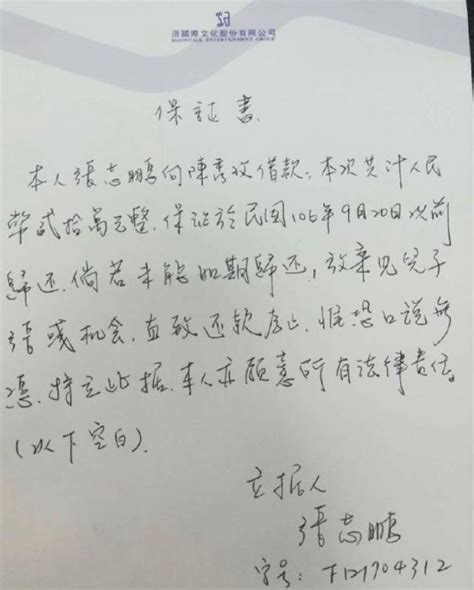 滾石國際文化股份有限公司
保証書
本人張志鵬向陳喬玟借款,本次共计人民
幣貳拾萬元整.保証於民国106年9月20日以前
歸还.倘若未能如期歸还,放棄見兒子
張彧机会.直致还款為止.惟恐口说無
憑.特立此据.本人亦願意所有法律责任.
(以下空白).
立据人
張志鵬
字号: F121704312